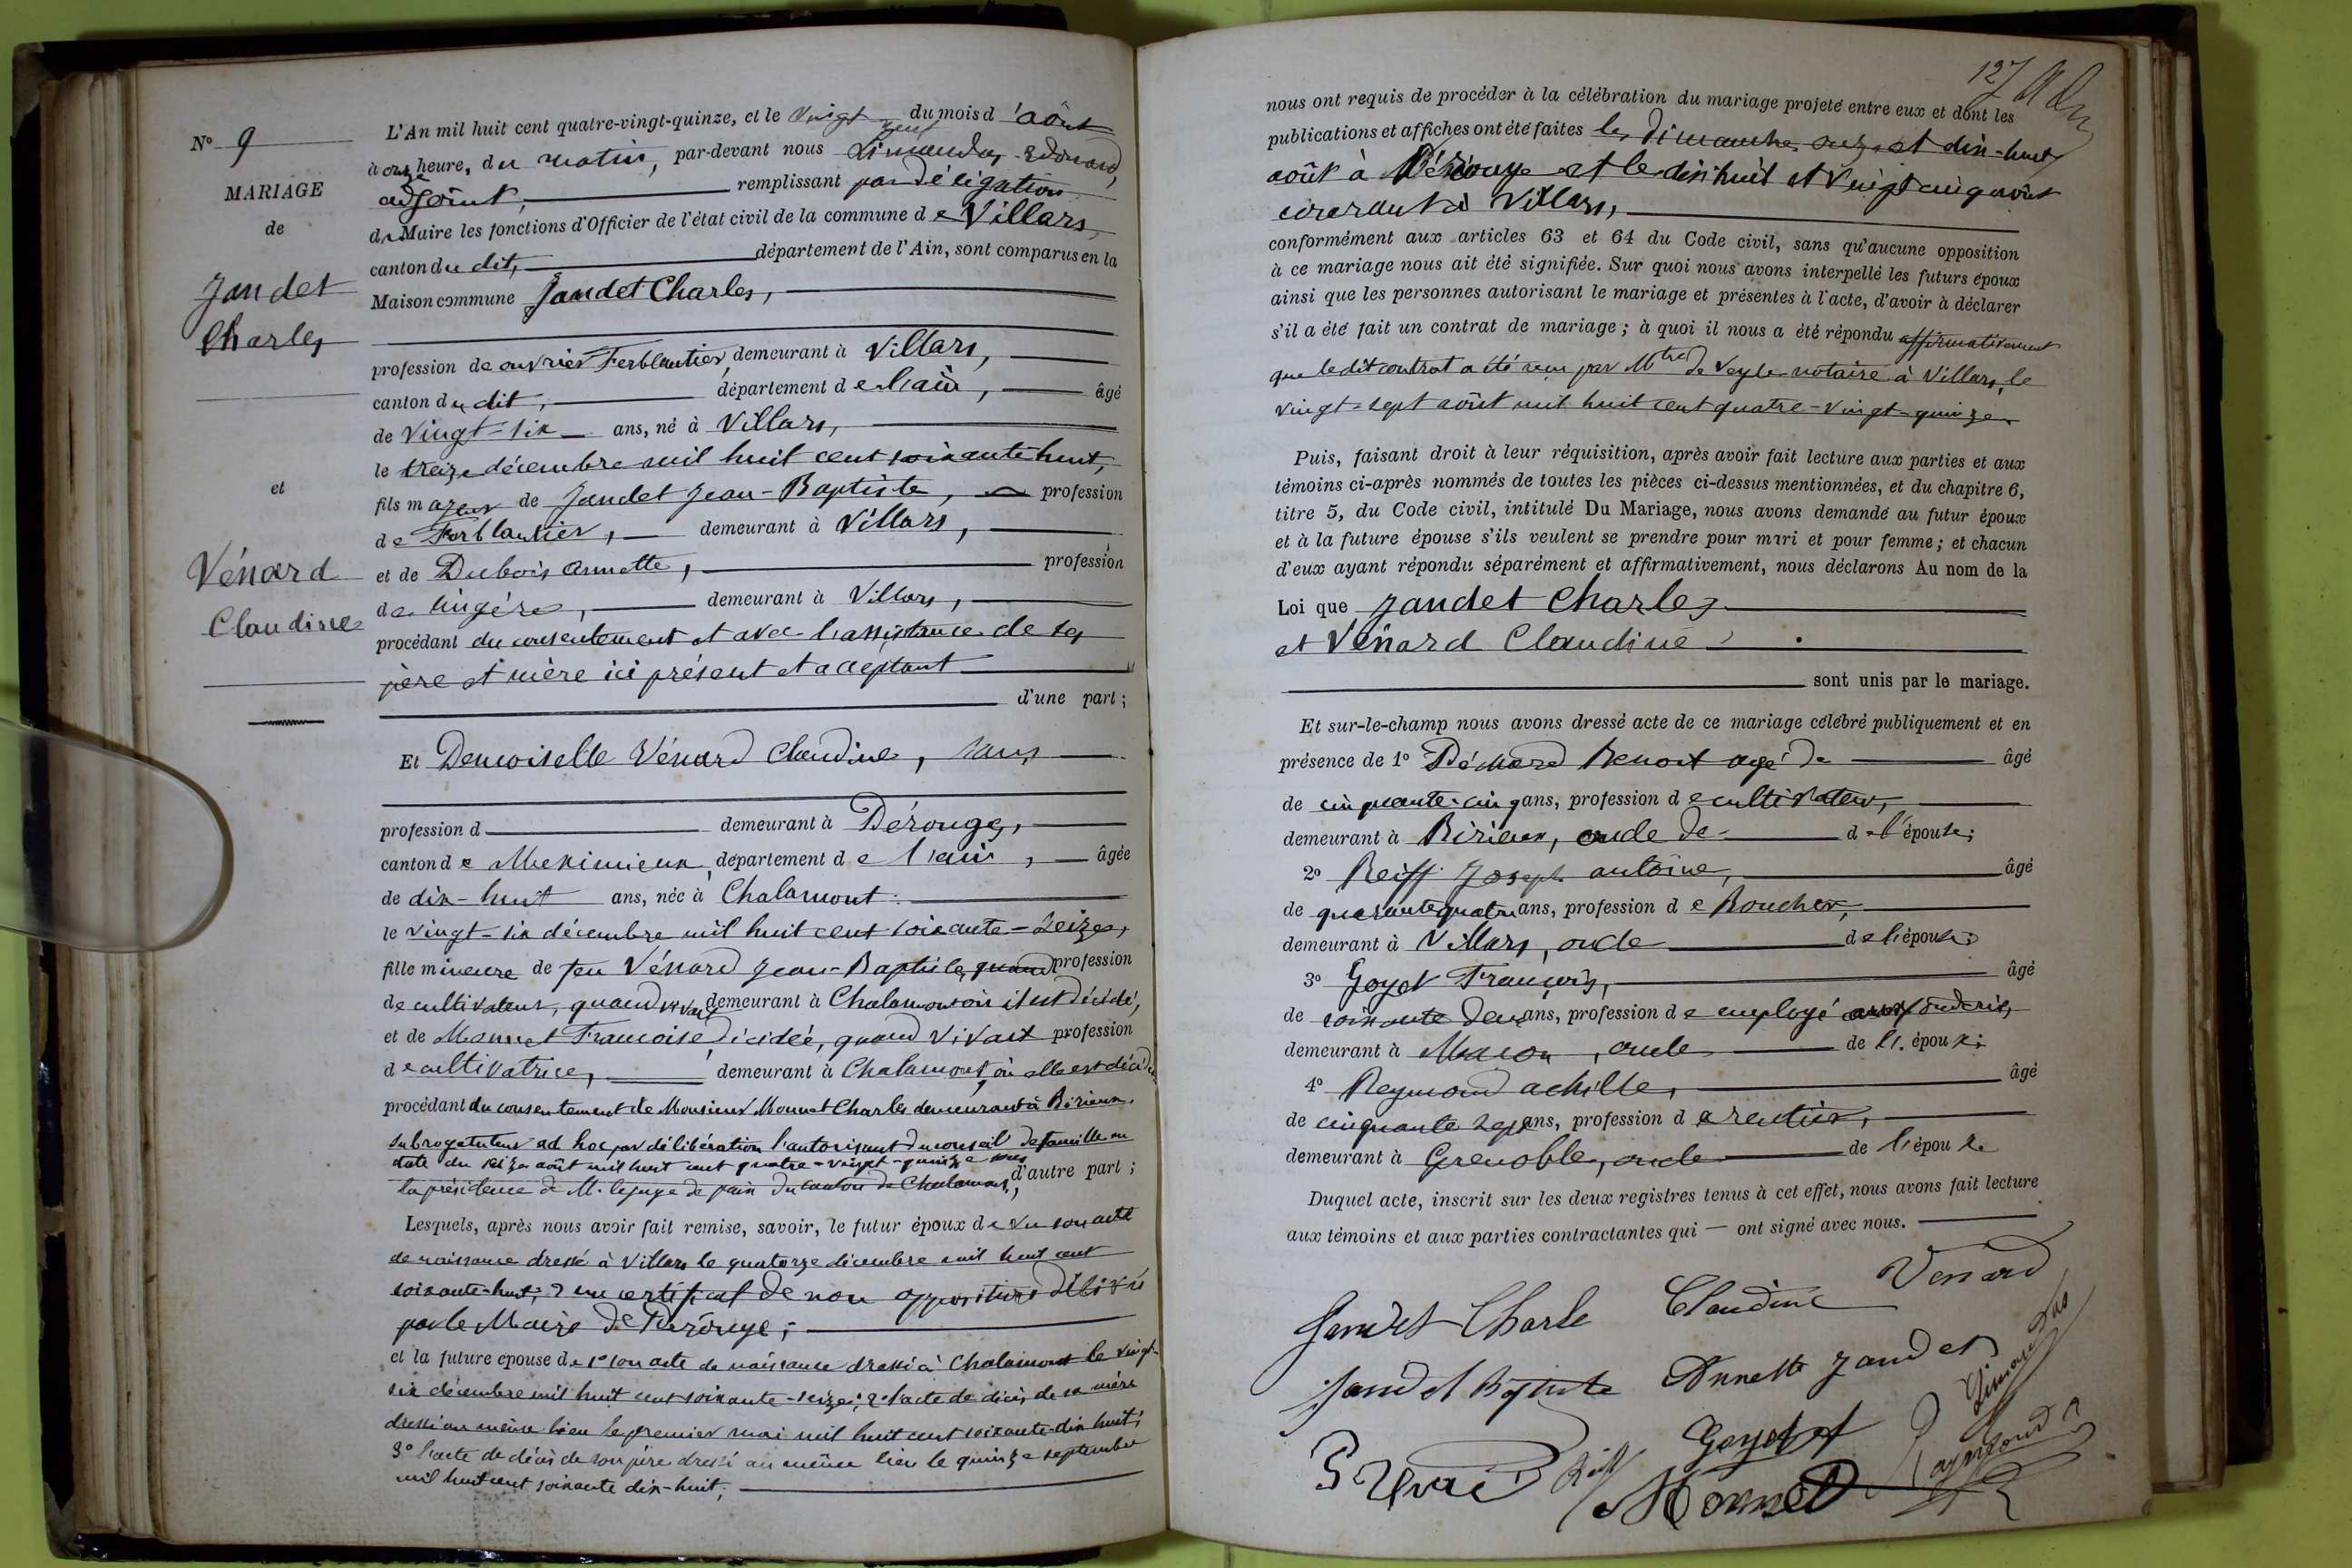 N° 9
MARIAGE
de
Jandet
Charles
et
Vénard
Claudine
L'An mil huit cent quatre-vingt-quinze, et le vingt neuf du mois d'août
à onze heure, du matin, par-devant nous Limandas Edouard,
adjoint, remplissant par délégation
de Maire les fonctions d'Officier de l'état civil de la commune de Villars,
canton du dit, département de l'Ain, sont comparus en la
Maison commune Jandet Charles,
profession de ouvrier Ferblantier, demeurant à Villars,
canton du dit, département de l'ain, âgé
de vingt-six ans, né à Villars,
le treize décembre mil huit cent soixante huit,
fils majeur de Jandet Jean-Baptiste, profession
de Ferblantier, demeurant à Villars,
et de Dubois annette, profession
de lingère, demeurant à Villars,
procédant du consentement et avec l'assistance de ses
père et mère ici présent et acceptant
d'une part;
Et Demoiselle Vénard Claudine, sans
profession d demeurant à Pérouge,
canton de Meximieux, département de l'ain, âgée
de dix-huit ans, née à Chalamont
le vingt-six décembre mil huit cent soixante-seize,
fille mineure de feu Vénard Jean-Baptiste, quand profession
de cultivateur, quand vivait demeurant à Chalamont où il est décédé,
et de Monnet Francoise décidée, quand vivait profession
de cultivatrice, demeurant à Chalamont, où elle est décédée
procédant du consentement de Monsieur Monnet Charles demeurant à Birieux,
subrogé tuteur ad hoc par délibération l'autorisant du conseil de famille en
date du seize août mil huit cent quatre-vingt-quinze sous
la présidence de M. le juge de paix du canton de Chalamont, d'autre part;
Lesquels, après nous avoir fait remise, savoir, le futur époux de vu son acte
de naissance dressé à Villars le quatorze décembre mil huit cent
soixante-huit; 2° un certificat de non opposition délivré
par le Maire de Pérouge;
et la future épouse de 1° son acte de naissance dressé à Chalamont le vingt-
six décembre mil huit cent soixante-seize; 2° l'acte de décès de sa mère
dressé au même lieu le premier mai mil huit cent soixante-dix huit;
3° l'acte de décès de son père dressé au même lieu le quinze septembre
mil huit cent soixante dix-huit;
127
nous ont requis de procéder à la célébration du mariage projeté entre eux et dont les
publications et affiches ont été faites les dimanches onze et dix-huit
août à Pérouge et le dix huit et vingt cinq août
courant à Villars,
conformément aux articles 63 et 64 du Code civil, sans qu'aucune opposition
à ce mariage nous ait été signifiée. Sur quoi nous avons interpellé les futurs époux
ainsi que les personnes autorisant le mariage et présentes à l'acte, d'avoir à déclarer
s'il a été fait un contrat de mariage; à quoi il nous a été répondu affirmativement
que le dit contrat a été reçu par Mtre de Veyle notaire à Villars, le
vingt-sept août mil huit cent quatre-vingt-quinze.
Puis, faisant droit à leur réquisition, après avoir fait lecture aux parties et aux
témoins ci-après nommés de toutes les pièces ci-dessus mentionnées, et du chapitre 6,
titre 5, du Code civil, intitulé Du Mariage, nous avons demandé au futur époux
et à la future épouse s'ils veulent se prendre pour mari et pour femme; et chacun
d'eux ayant répondu séparément et affirmativement, nous déclarons Au nom de la
Loi que Jandet Charles
et Vénard Claudine
sont unis par le mariage.
Et sur-le-champ nous avons dressé acte de ce mariage célébré publiquement et en
présence de 1° Benoit agé de âgé
de cinquante-cinq ans, profession de cultivateur,
demeurant à Birieux, oncle de de l'épouse;
2° Reiff Joseph antoine, âgé
de quarante quatre ans, profession de Boucher,
demeurant à Villars, oncle de l'épouse;
3° Goyet François, âgé
de soixante deux ans, profession de employé
demeurant à Macon, oncle de l'épouse;
4° Reymond achille, âgé
de cinquante sept ans, profession de rentier,
demeurant à Grenoble, oncle de l'épouse
Duquel acte, inscrit sur les deux registres tenus à cet effet, nous avons fait lecture
aux témoins et aux parties contractantes qui — ont signé avec nous.
Jandet Charle Claudine Venard
Jandet Baptiste Annette Jandet Limandas
Reiff Goyet Raymond
Monnet